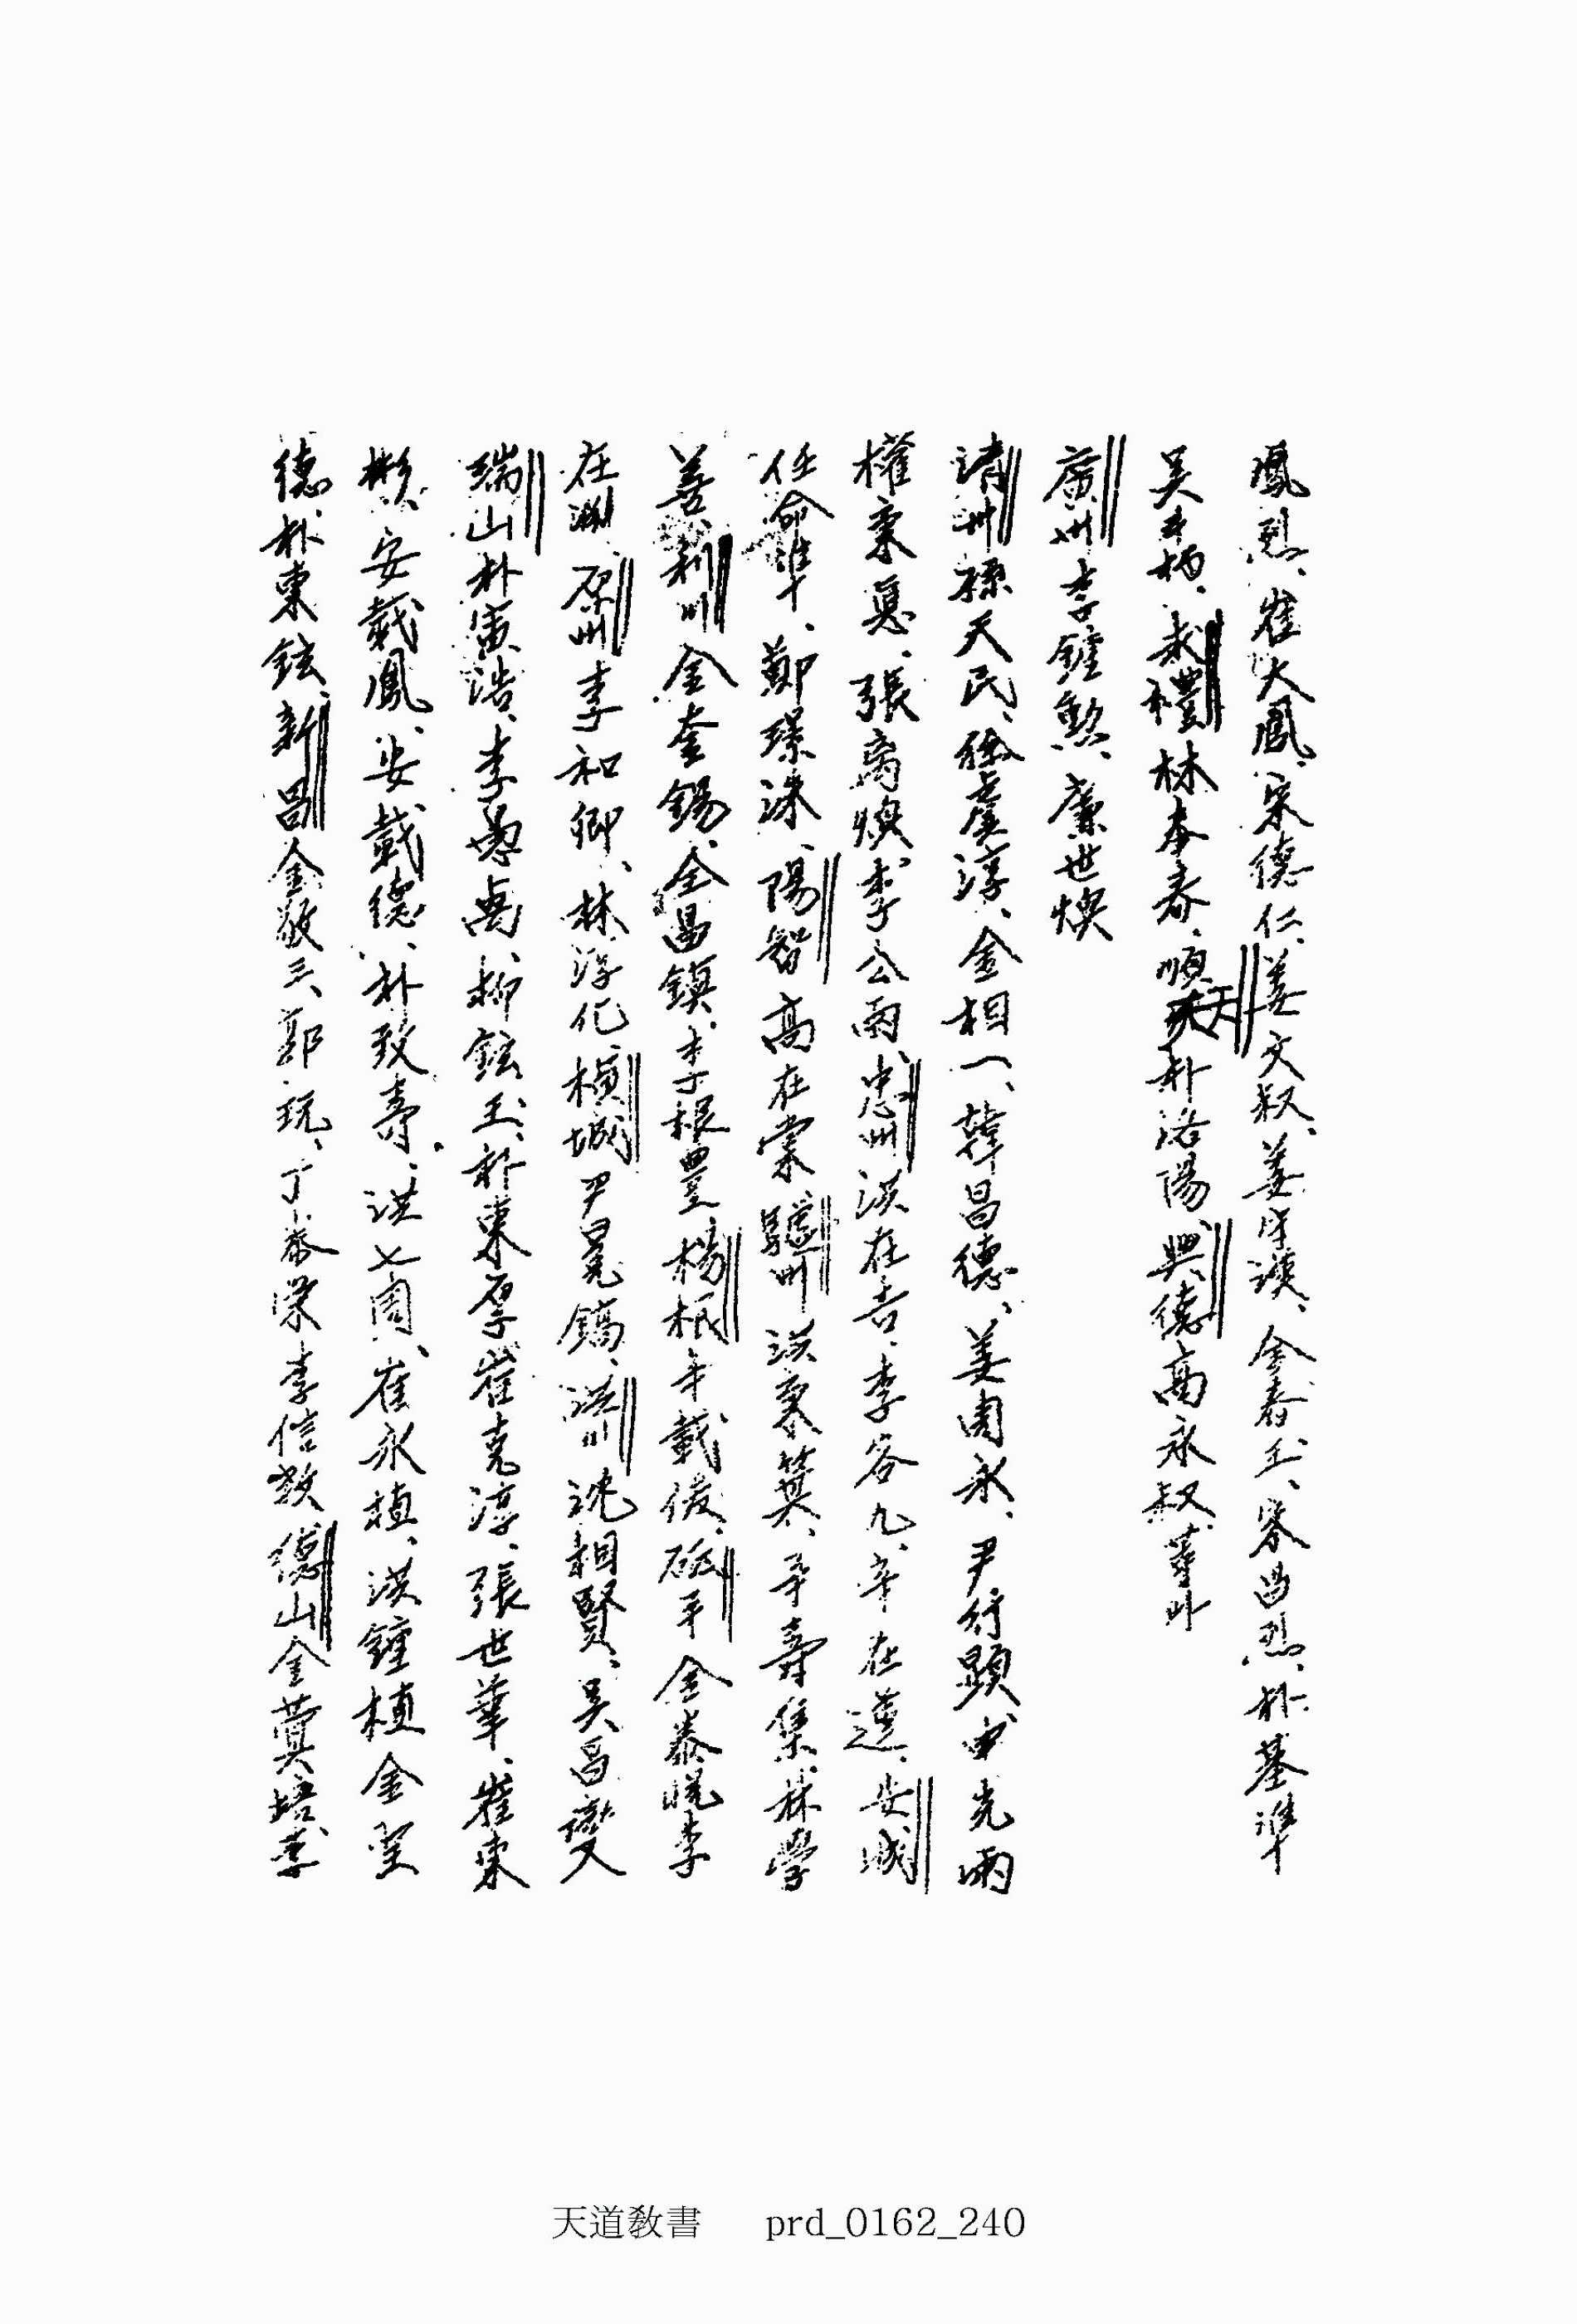 鳳烈、崔大鳳、宋德仁、姜文叔、姜守漢、金春玉、宋昌烈、朴基準
吳 柄、求禮林奉春、順天朴洛陽、興德高永叔、等外
廣州李鍾勲、廉世煥
淸州孫天民、徐虞淳、金相一、韓昌德、姜周永、尹行顯、申光雨
權秉悳、張 煥、李公雨、忠州洪在吉、李容九、辛在蓮、安城
任命準、鄭璟洙、陽智高在棠、驪州洪秉箕、辛壽集、林學
善、利川金奎錫、全昌鎭、李根豊、楊根辛載俊、砥平金泰悅、李
在淵、原州李和卿、林淳化、橫城尹冕鎬、洪川沈相賢、吳昌燮
瑞山朴寅浩、李愚卨、柳鉉玉、朴東厚、崔克淳、張世華、崔東
彬、安載鳳、安載德、朴致壽、洪七周、崔永植、洪鍾植、金
德、朴東鉉、新昌金敬三、郭玩、丁泰榮、李信敎、德山金蓂培、李